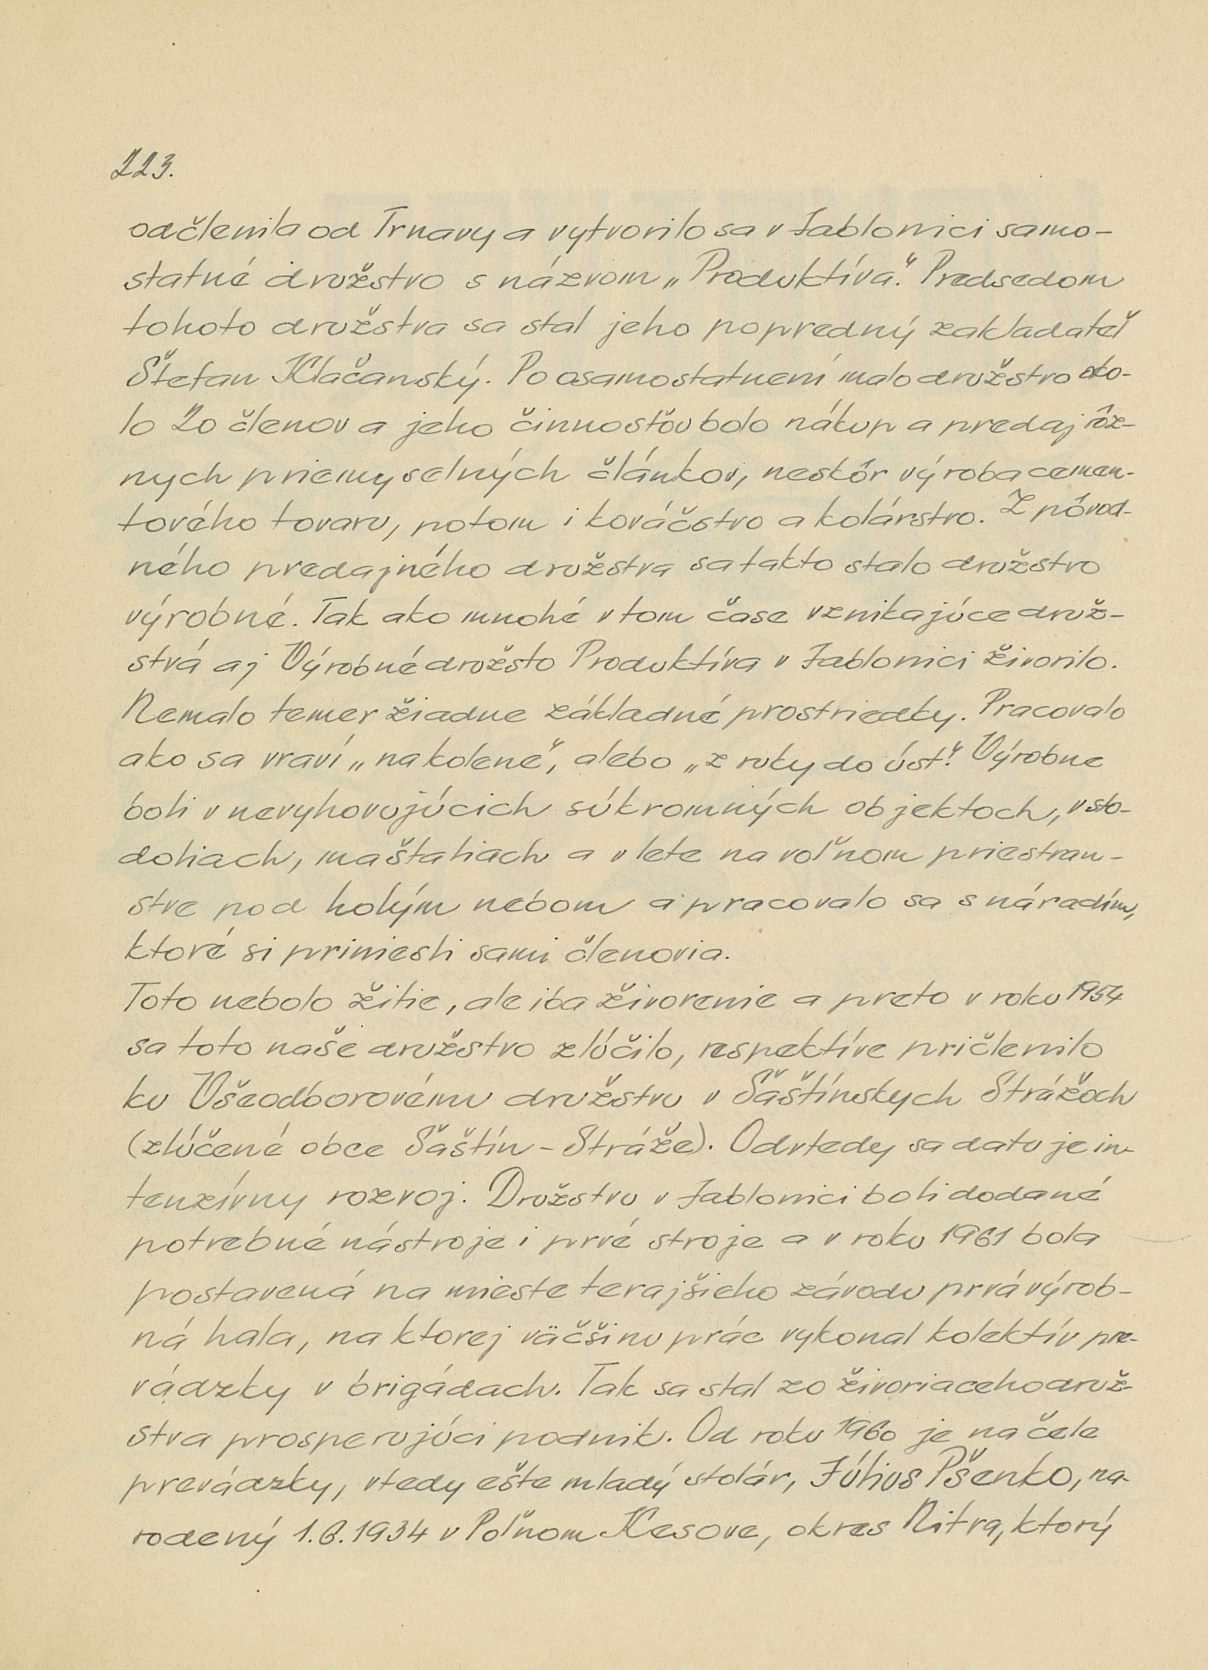 223.
odčlenila od Trnavy a vytvorilo sa v Jablonici samo-
statné družstvo s názvom „Produktíva". Predsedom
tohoto družstva sa stal jeho popredný zakladateľ
Štefan Klačanský. Po osamostatnení malo družstvo oko-
lo 20 členov a jeho činnosťou bolo nákup a predaj rôz-
nych priemyselných článkov, neskôr výroba cemen-
tového tovaru, potom i kováčstvo a kolárstvo. Z pôvod-
ného predajného družstva sa takto stalo družstvo
výrobné. Tak ako mnohé v tom čase vznikajúce druž-
stvá aj Výrobné družsto Produktíva v Jablonici živorilo.
Nemalo temer žiadne základné prostriedky. Pracovalo
ako sa vraví „na kolene", alebo „z ruky do úst". Výrobne
boli v nevyhovujúcich súkromných objektoch, v sto-
doliach, maštaliach a v lete na voľnom priestran-
stve pod holým nebom a pracovalo sa s náradím,
ktoré si priniesli sami členovia.
Toto nebolo žitie, ale iba živorenie a preto v roku 1954
sa toto naše družstvo zlúčilo, respektíve pričlenilo
ku Všeodborovému družstvu v Šaštínskych Strážoch
(zlúčené obce Šaštín-Stráže). Odvtedy sa datuje in-
tenzívny rozvoj. Družstvu v Jablonici boli dodané
potrebné nástroje i prvé stroje a v roku 1961 bola
postavená na mieste terajšieho závodu prvá výrob-
ná hala, na ktorej väčšinu prác vykonal kolektív pre-
vádzky v brigádach. Tak sa stal zo živoriaceho druž-
stva prosperujúci podnik. Od roku 1960 je na čele
prevádzky, vtedy ešte mladý stolár, Július Pšenko, na-
rodený 1.8.1934 v Poľnom Kesove, okres Nitra, ktorý